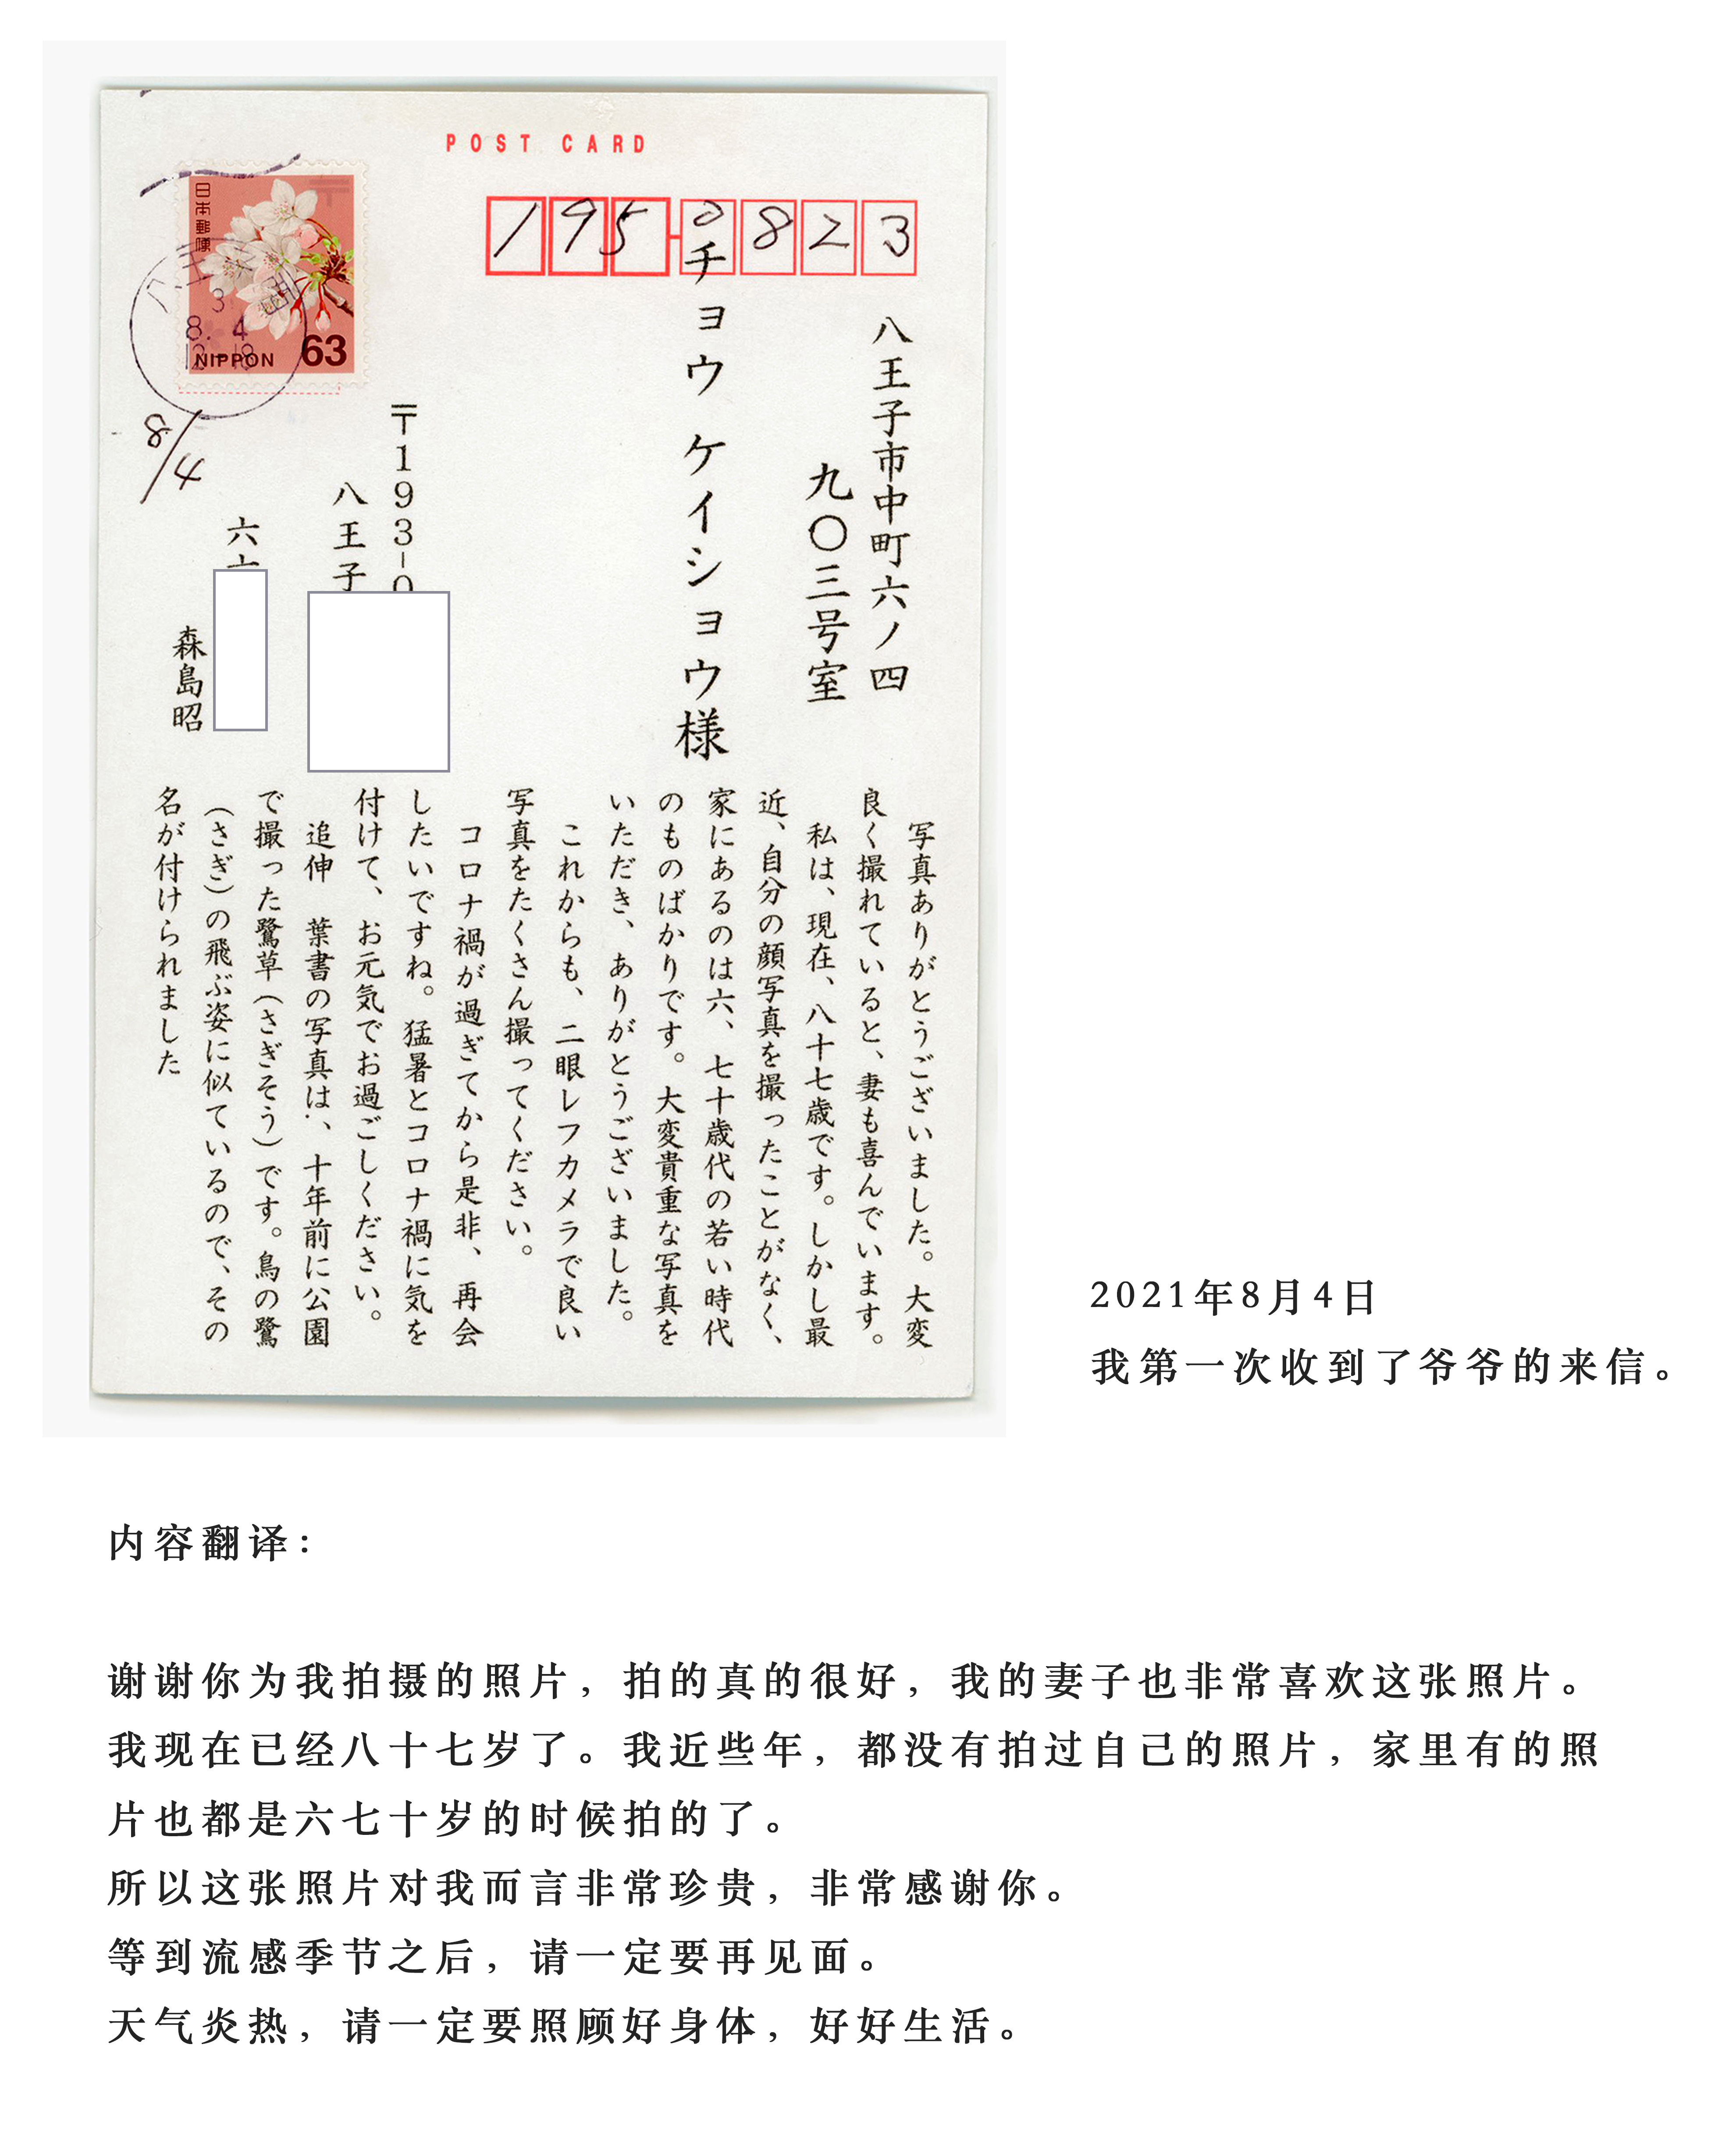 POST CARD
195-0823
八王子市中町六ノ四
九〇三号室
チョウケイショウ様
日本郵便
NIPPON 63
8. 4
12-18
8/4
〒193-0
八王子
六
森島昭
写真ありがとうございました。大変
良く撮れていると、妻も喜んでいます。
私は、現在、八十七歳です。しかし最
近、自分の顔写真を撮ったことがなく、
家にあるのは六、七十歳代の若い時代
のものばかりです。大変貴重な写真を
いただき、ありがとうございました。
これからも、二眼レフカメラで良い
写真をたくさん撮ってください。
コロナ禍が過ぎてから是非、再会
したいですね。猛暑とコロナ禍に気を
付けて、お元気でお過ごしください。
追伸 葉書の写真は、十年前に公園
で撮った鷺草(さぎそう)です。鳥の鷺
(さぎ)の飛ぶ姿に似ているので、その
名が付けられました
2021年8月4日
我第一次收到了爷爷的来信。
内容翻译：
谢谢你为我拍摄的照片，拍的真的很好，我的妻子也非常喜欢这张照片。
我现在已经八十七岁了。我近些年，都没有拍过自己的照片，家里有的照
片也都是六七十岁的时候拍的了。
所以这张照片对我而言非常珍贵，非常感谢你。
等到流感季节之后，请一定要再见面。
天气炎热，请一定要照顾好身体，好好生活。